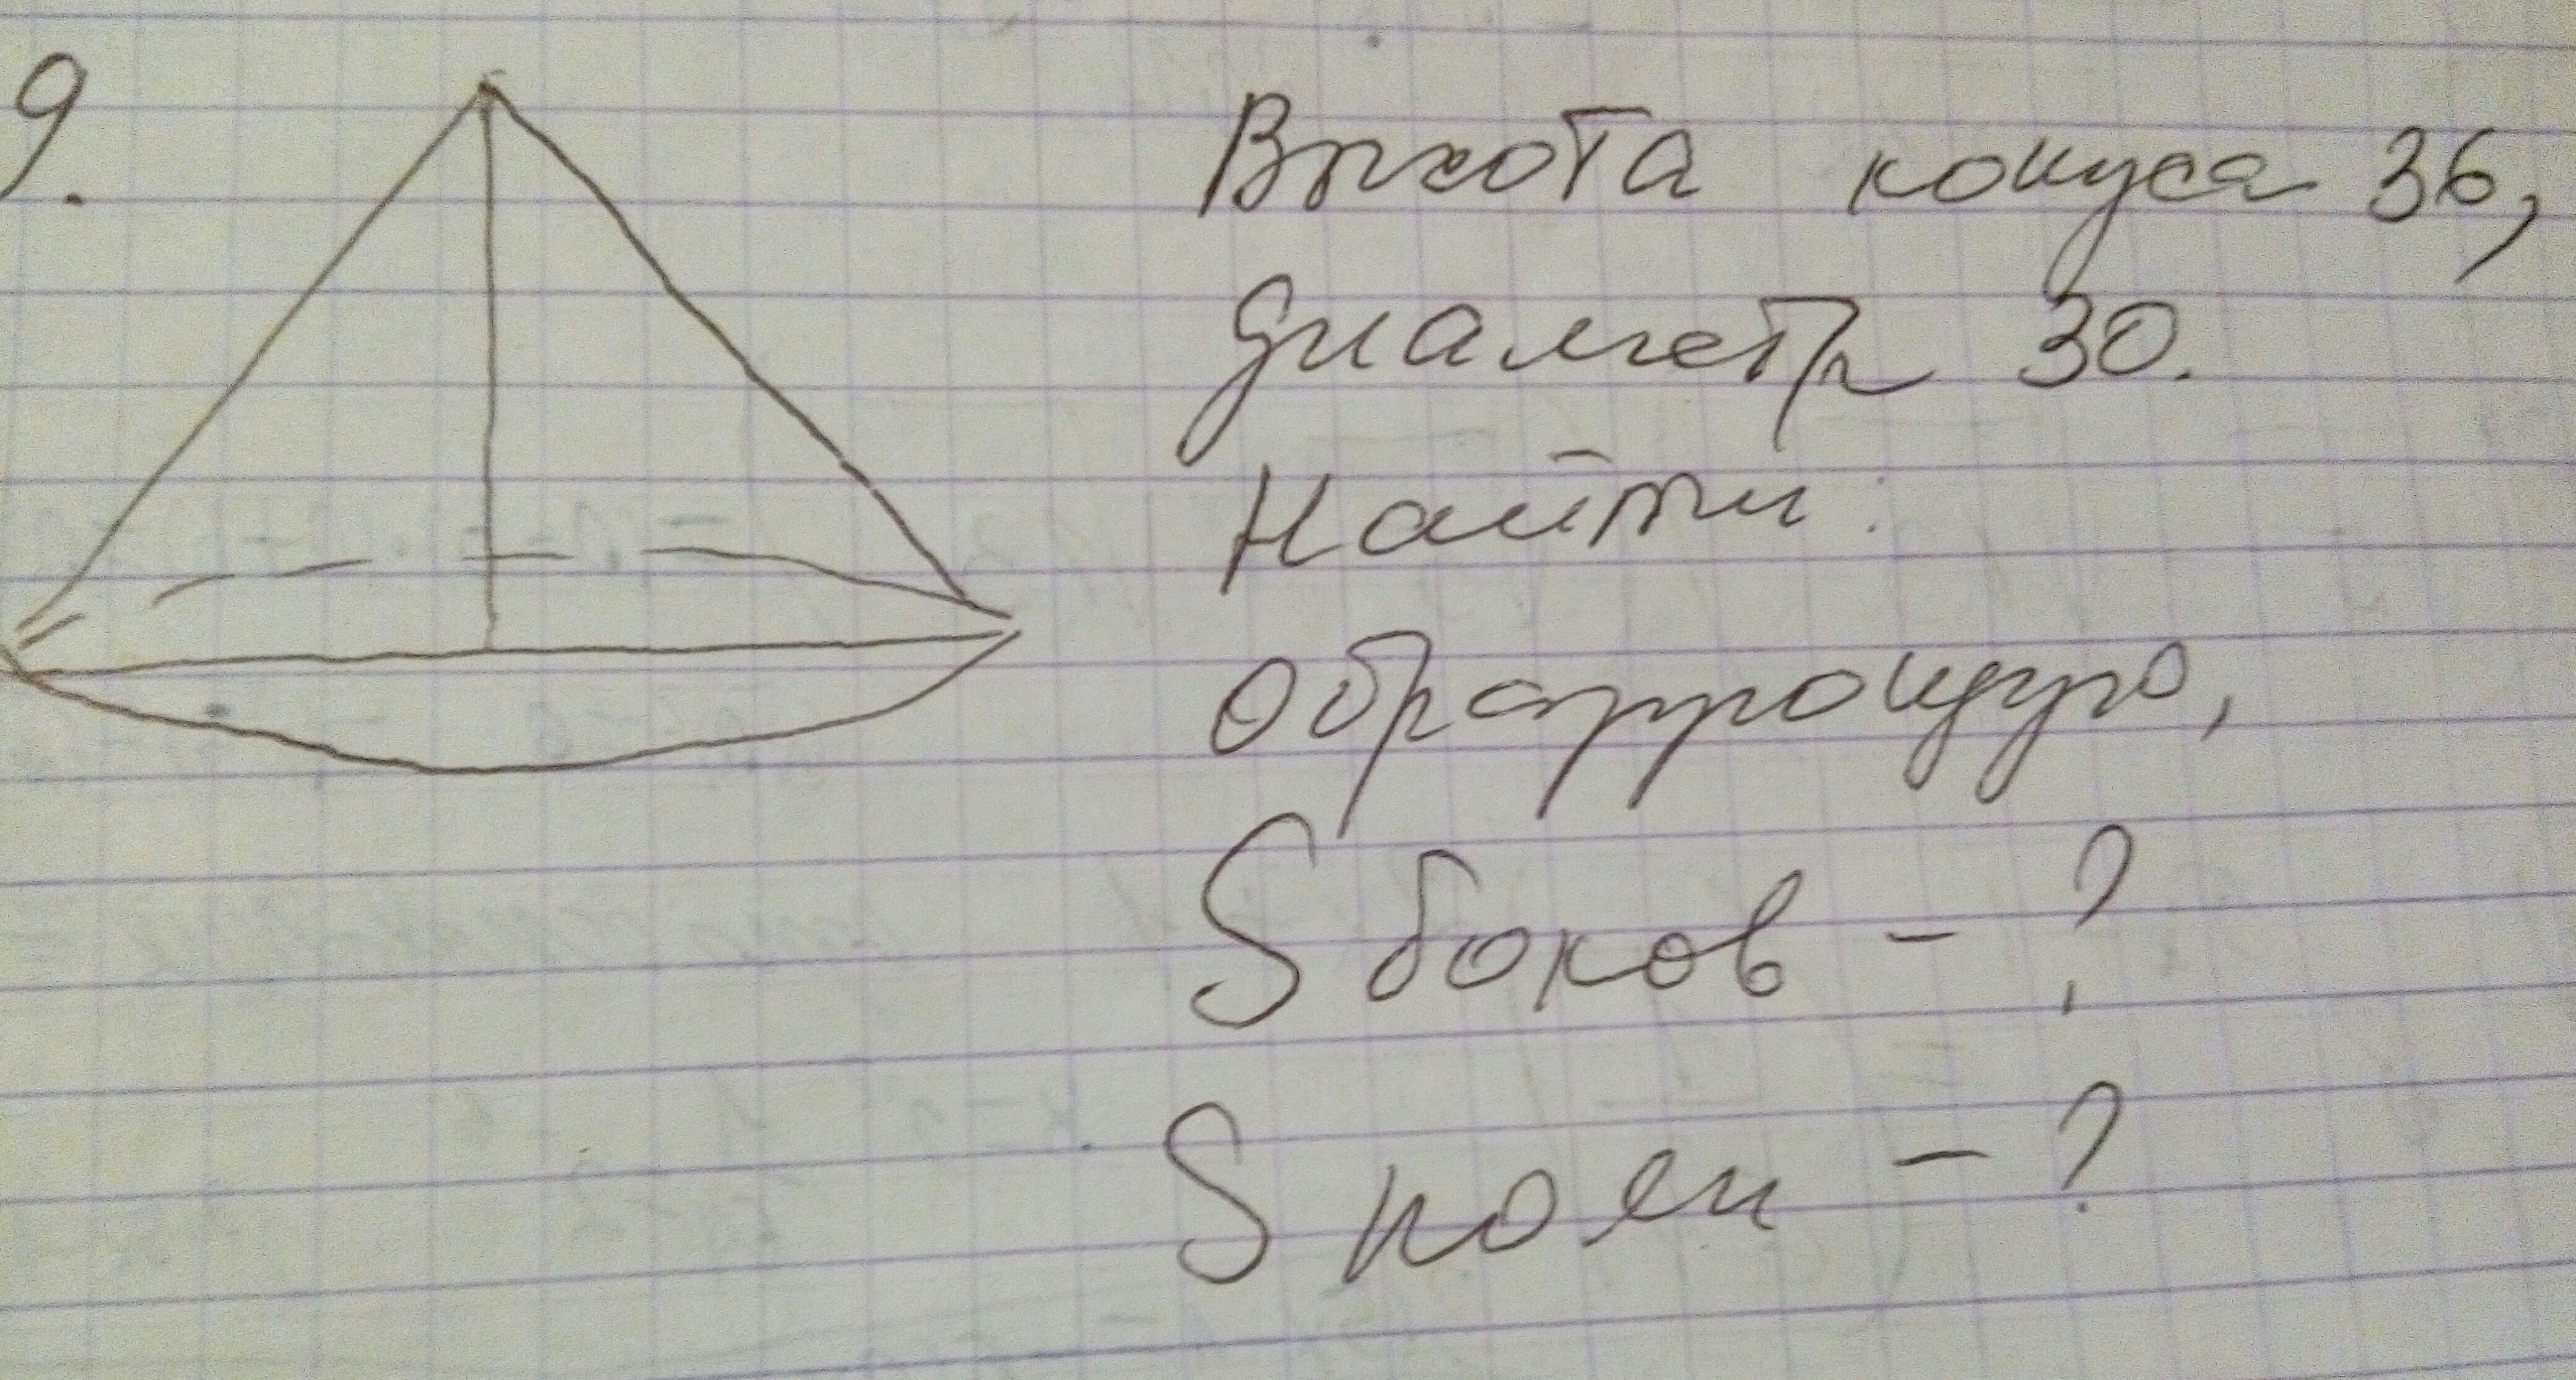 9.
Высота конуса 36,
диаметр 30.
Найти:
образующую,
S боков - ?
S полн - ?